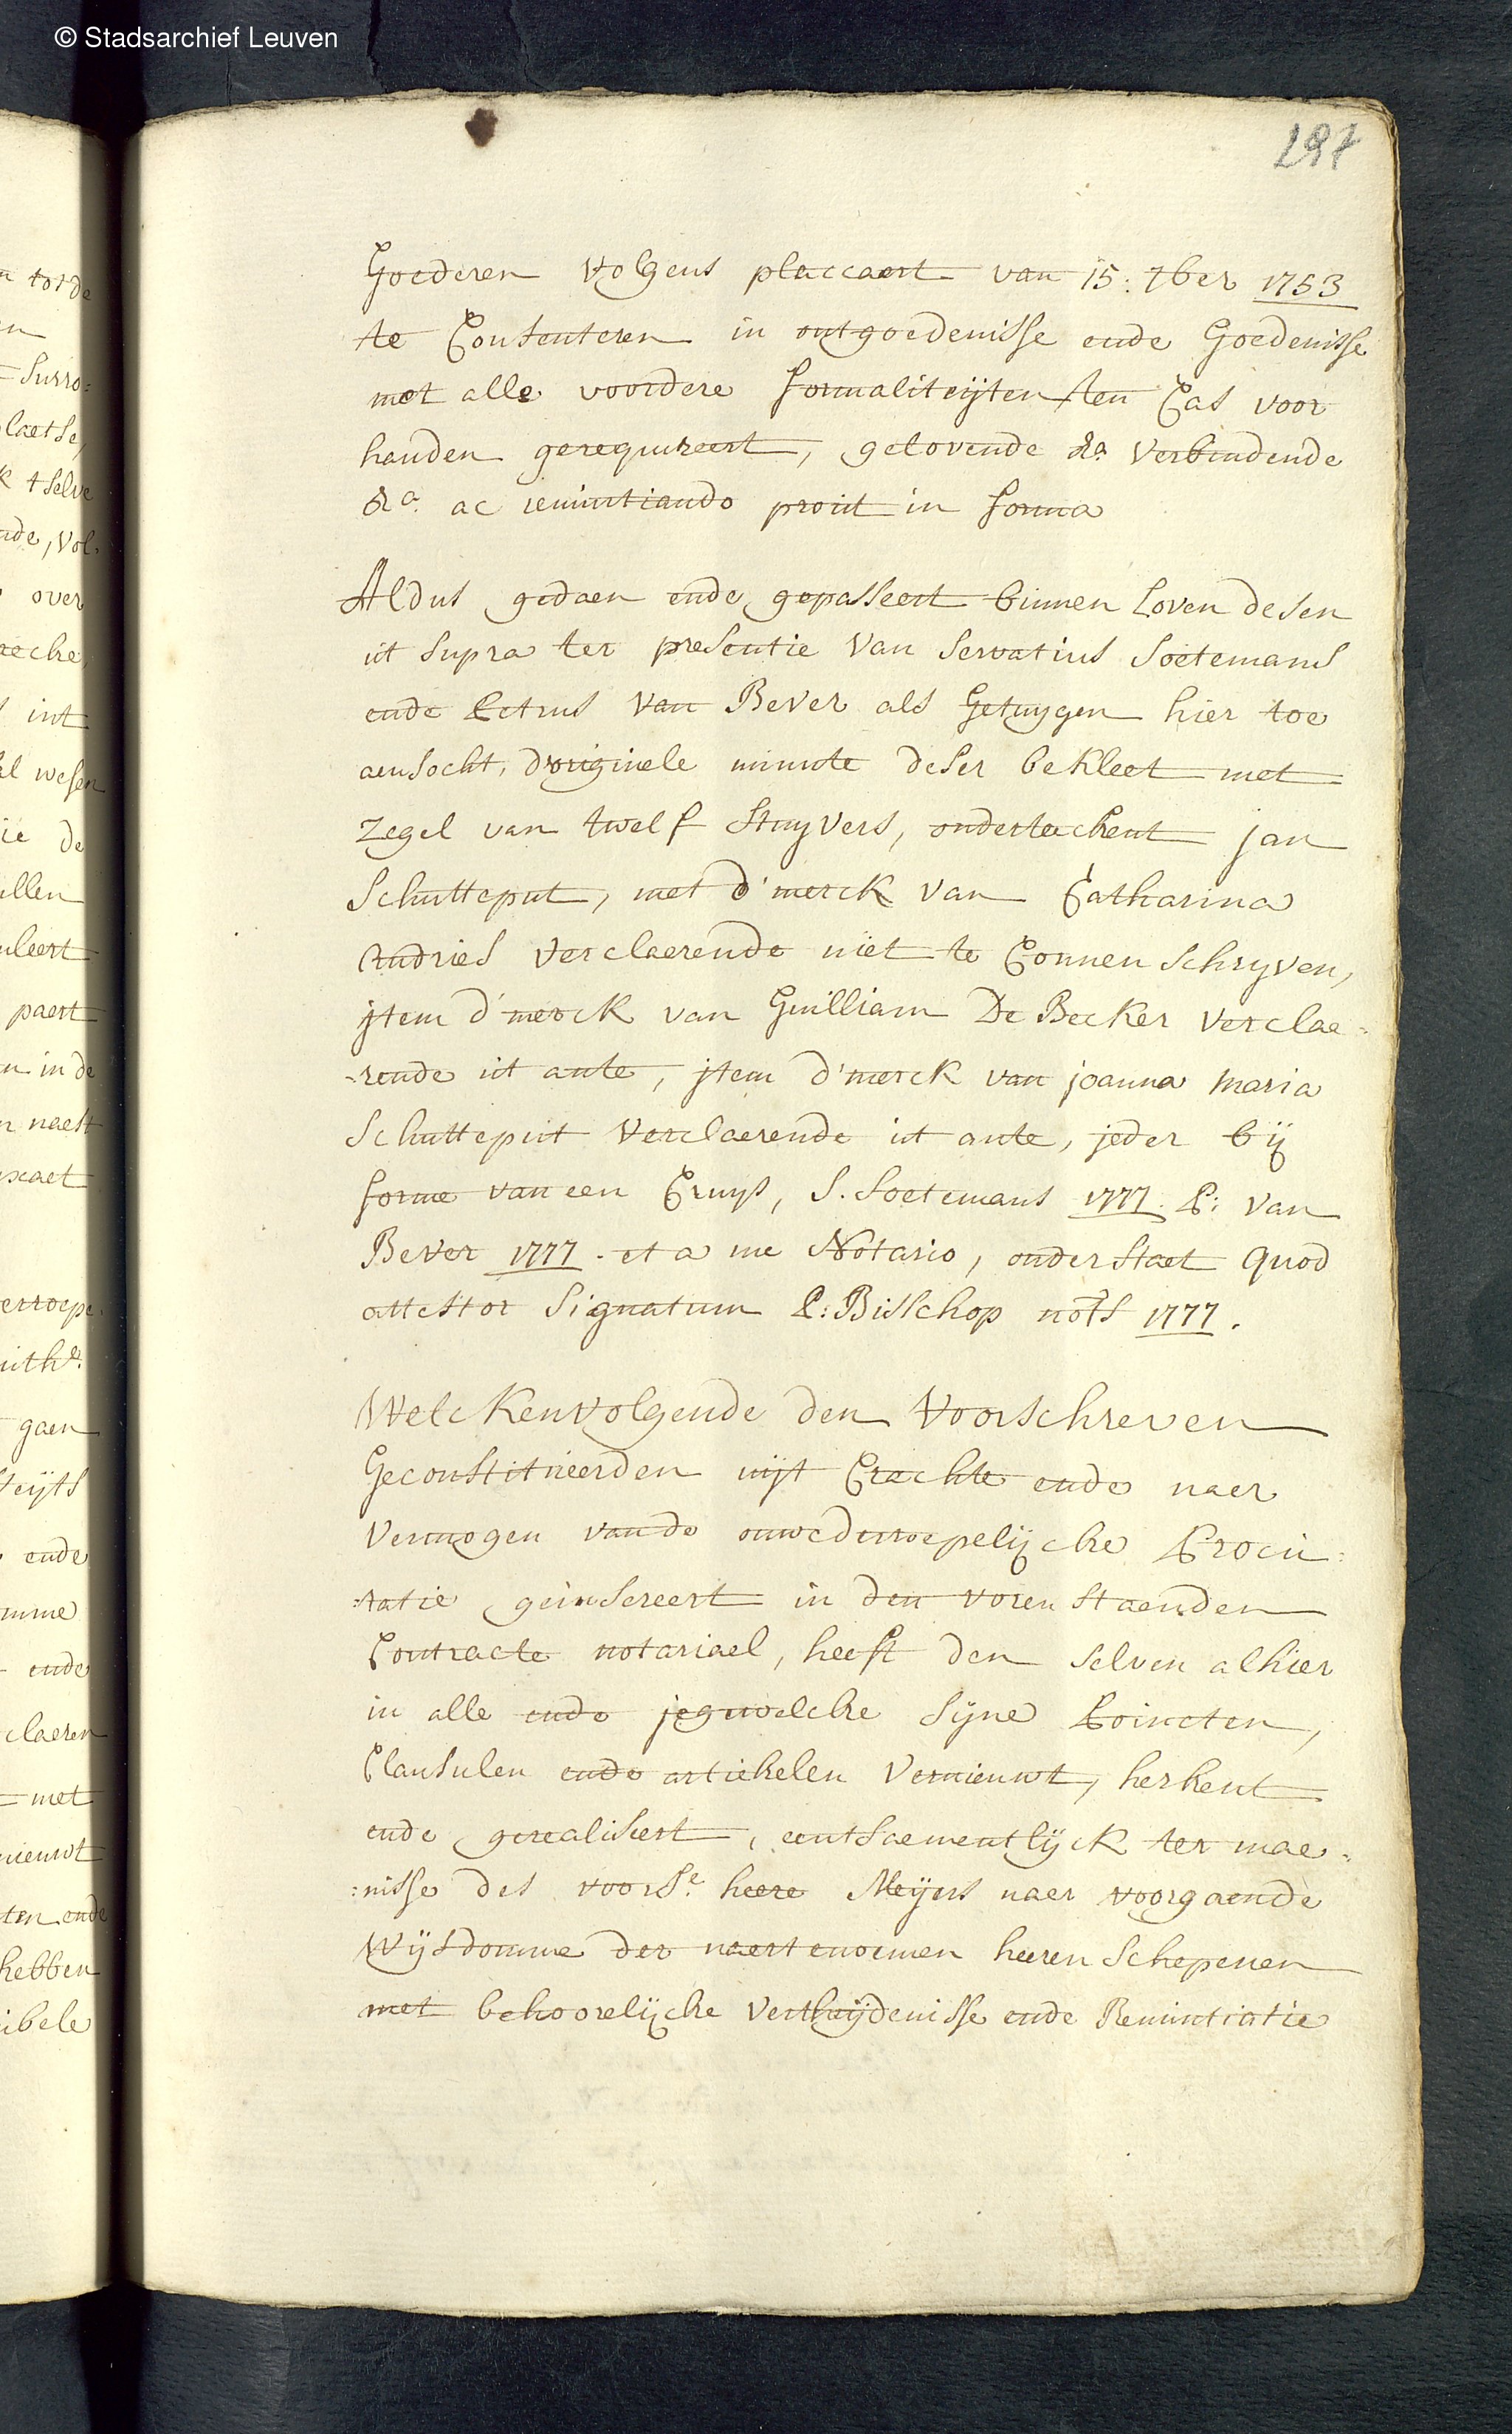 © Stadsarchief Leuven
297
Goederen volgens placcaert van 15: 7ber 1753
te Consenteren in ontgoedenisse ende Goedenisse
met alle voordere formaliteijten ten Cas voor
handen gerequireert, gelovende &a verbindende
&a. ac renuntiando prout in forma
Aldus gedaen ende gepasseert binnen Loven desen
ut supra ter presentie van Servatius Soetemans
ende Petrus van Bever als Getuygen hier toe
aensocht, d'originele minute deser bekleet met
zegel van twelf stuyvers, onderteckent jan
Schutteput, met d'merck van Catharina
Andries verclaerende niet te Connen schryven,
jtem d'merck van Guilliam De Becker verclae-
-rende ut ante, jtem d'merck van joanna maria
Schutteput verclaerende ut ante, jeder bij
forme van een Cruys, S. Soetemans 1777. P: van
Bever 1777. et a me Notario, onderstaet quod
attestor signatum P: Bisschop nots 1777.
Welckenvolgende den voorschreven
Geconstitueerden uijt Crachte ende naer
vermogen vande onwederroepelijcke Procu:
:ratie geinsereert in den voren staenden
Contracte notariael, heeft den selven alhier
in alle ende jegewelcke sijne Poincten,
Clausulen ende artickelen vernieuwt, herkent
ende gerealiseert, eentsaementlijck ter mae-
:nisse des voorse. heere Meijers naer voorgaende
Wijsdomme der naertenoemen heeren Schepenen
met behoorelijcke verthijdenisse ende Renuntiatie